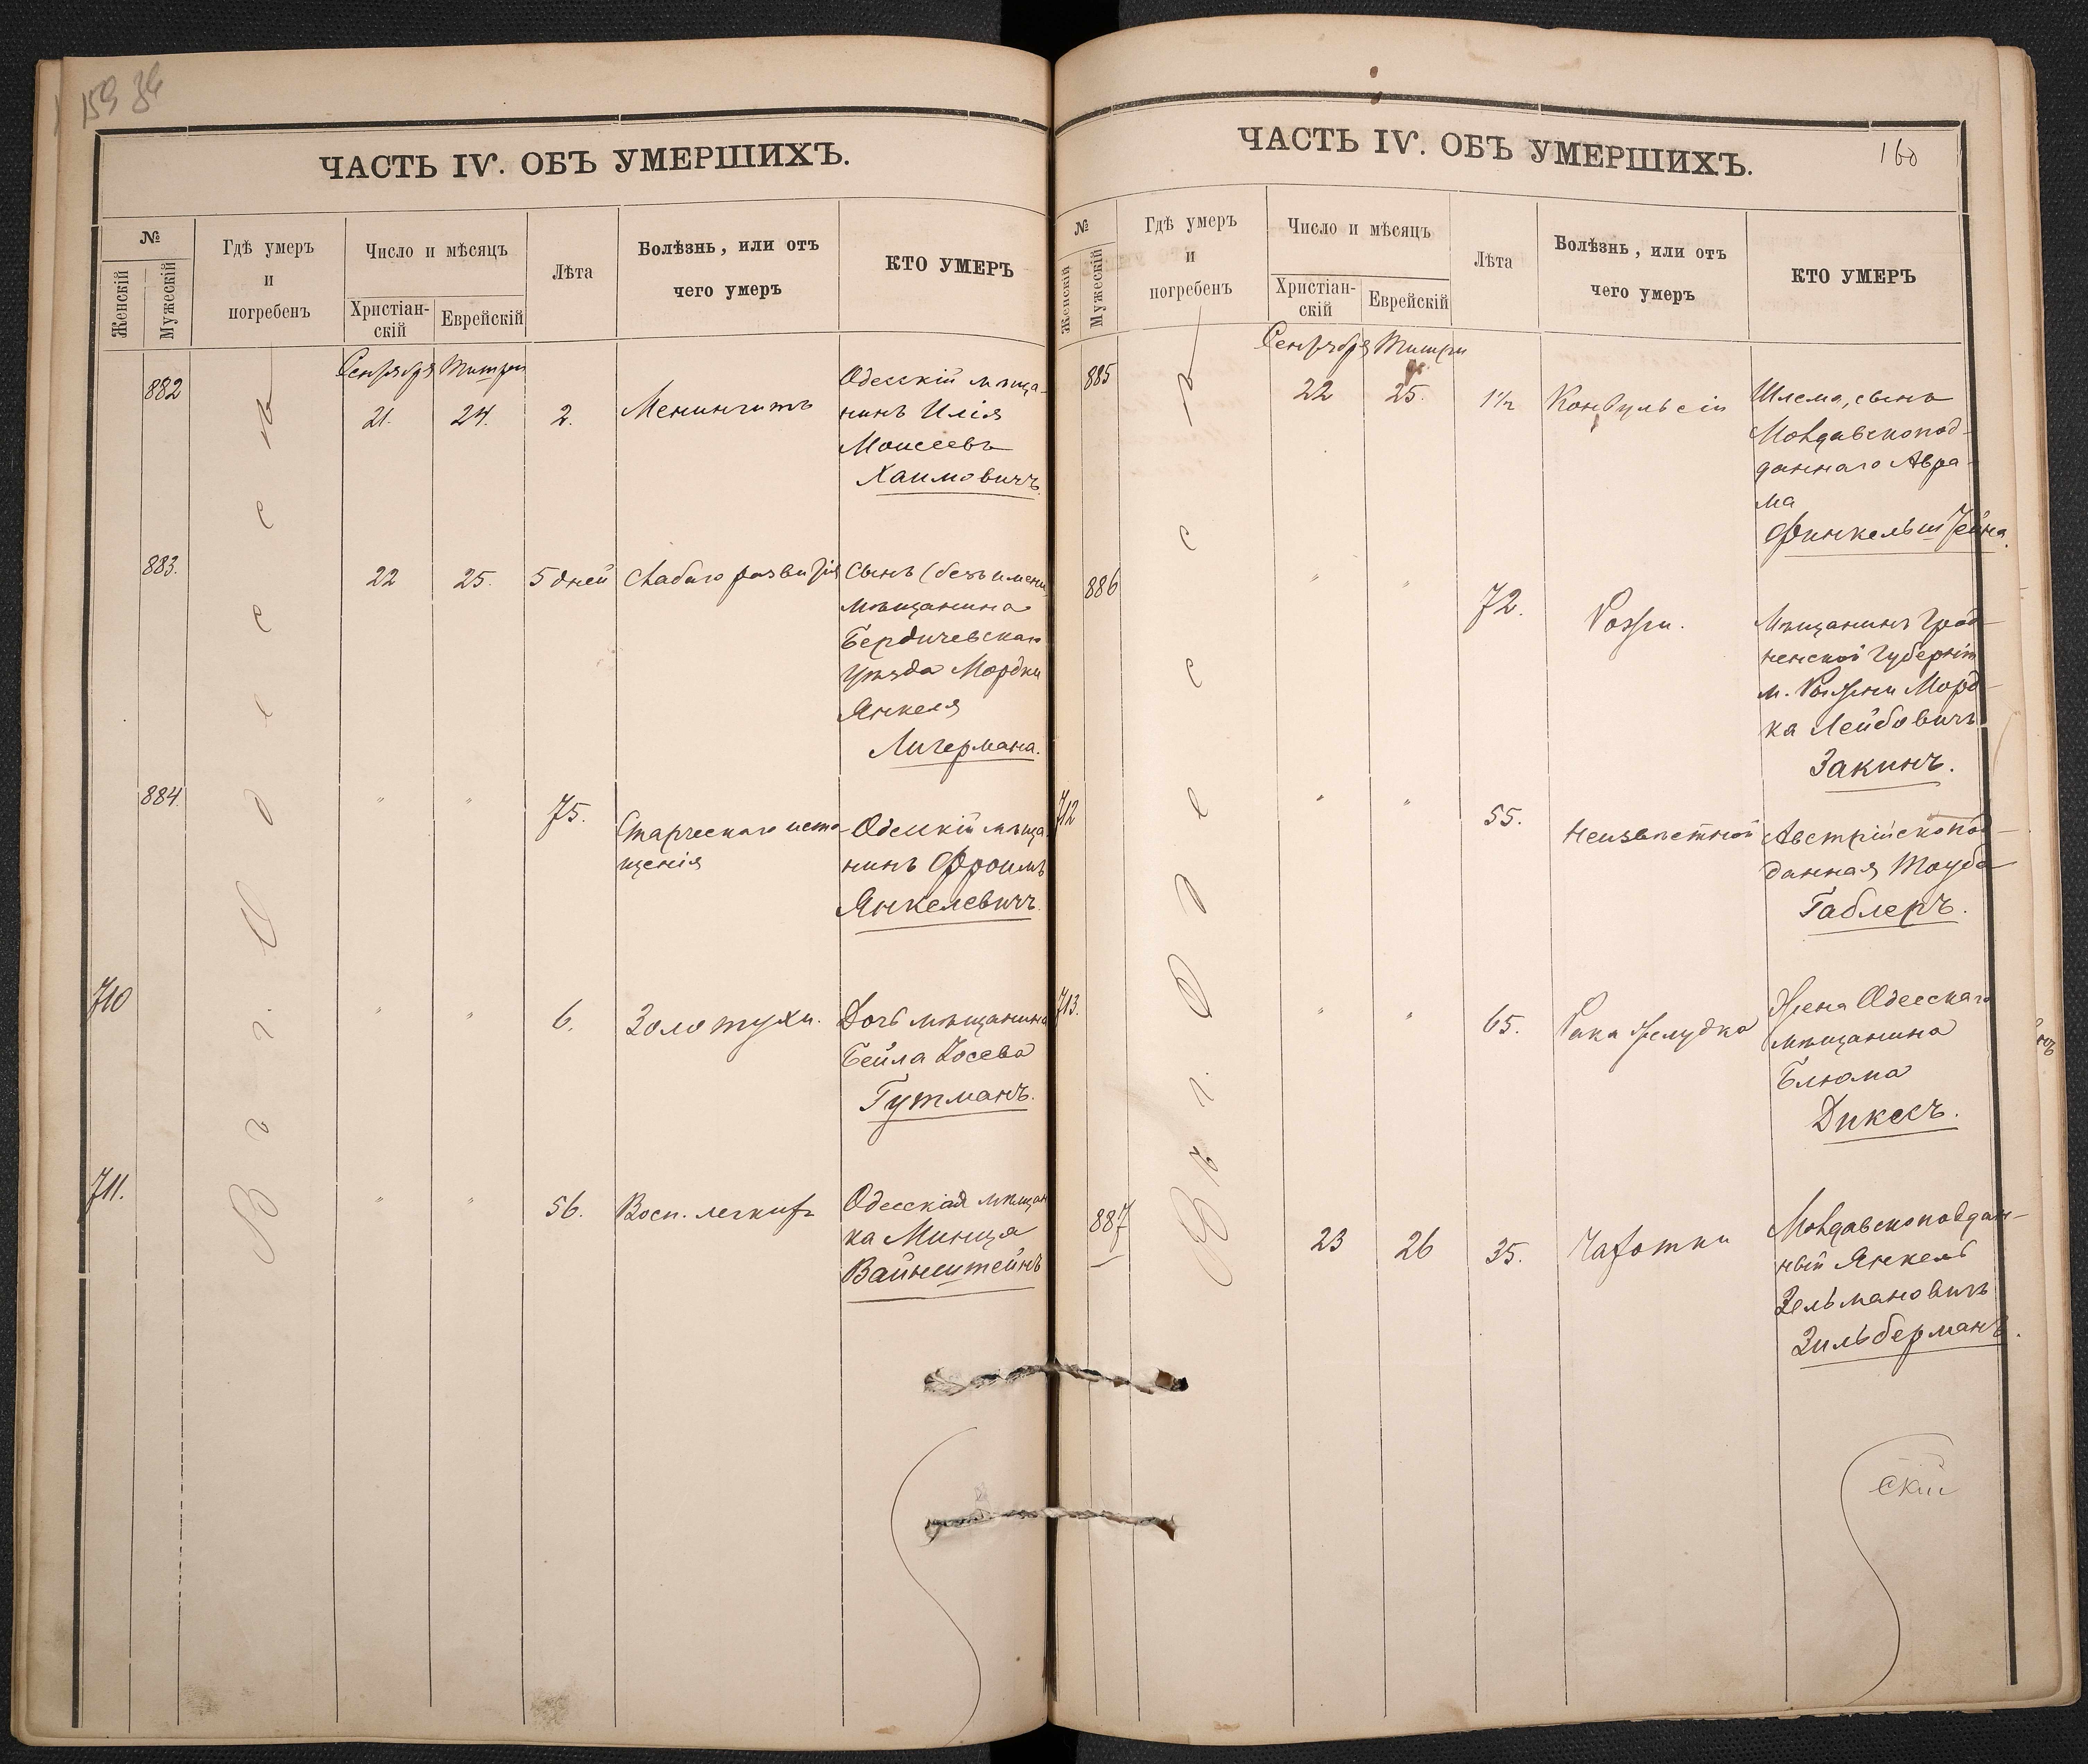 159 34
ЧАСТЬ IV. ОБЪ УМЕРШИХЪ.
№
Женскій
Мужескій
Гдѣ умеръ
и
погребенъ
Число и мѣсяцъ
Христіан-
скій
Еврейскій
Лѣта
Болѣзнь, или отъ
чего умеръ
КТО УМЕРЪ
Въ г. Одессѣ
Сентября Тишри
882 21. 24. 2. Менингитъ
Одесскій мѣща-
нинъ Илія
Моисеевъ
Хаимовичъ.
883. 22 25. 5 дней Слабаго развитія
Сынъ (безъ имени
мѣщанина
Бердичевскаго
уѣзда Мордки
Янкеля
Лигермана.
884 " " 75. Старческаго исто-
щенія
Одесскій мѣща-
нинъ Фроимъ
Янкелевичъ.
710 " " 6. Золотухи.
Дочь мѣщанина
Бейла Іосева
Гутманъ.
711. " " 56. Восп. легкихъ
Одесская мѣщан
ка Минца
Вайнштейнъ
ЧАСТЬ IV. ОБЪ УМЕРШИХЪ.
160
№
Женскій
Мужескій
Гдѣ умеръ
и
погребенъ
Число и мѣсяцъ
Христіан-
скій
Еврейскій
Лѣта
Болѣзнь, или отъ
чего умеръ
КТО УМЕРЪ
Въ г. Одессѣ
Сентября Тишри
885 22 25. 1½ Конвульсіи
Шлема, сынъ
Молдавскопод-
даннаго Авра-
ма
Финкельштейна.
886 " " 72. Рожи.
Мѣщанинъ Грод-
ненской Губерніи
м. Рожаны Морд-
ка Лейбовичъ
Закинъ.
712 " " 55. Неизвѣстной
Австрійскопод-
данная Тауба
Габлеръ.
713. " " 65. Рака желудка
Жена Одесскаго
мѣщанина
Блюма
Диксъ.
887 23 26 35. Чахотки
Молдавскоподдан-
ный Янкель
Зельмановичъ
Зильберманъ.
скій